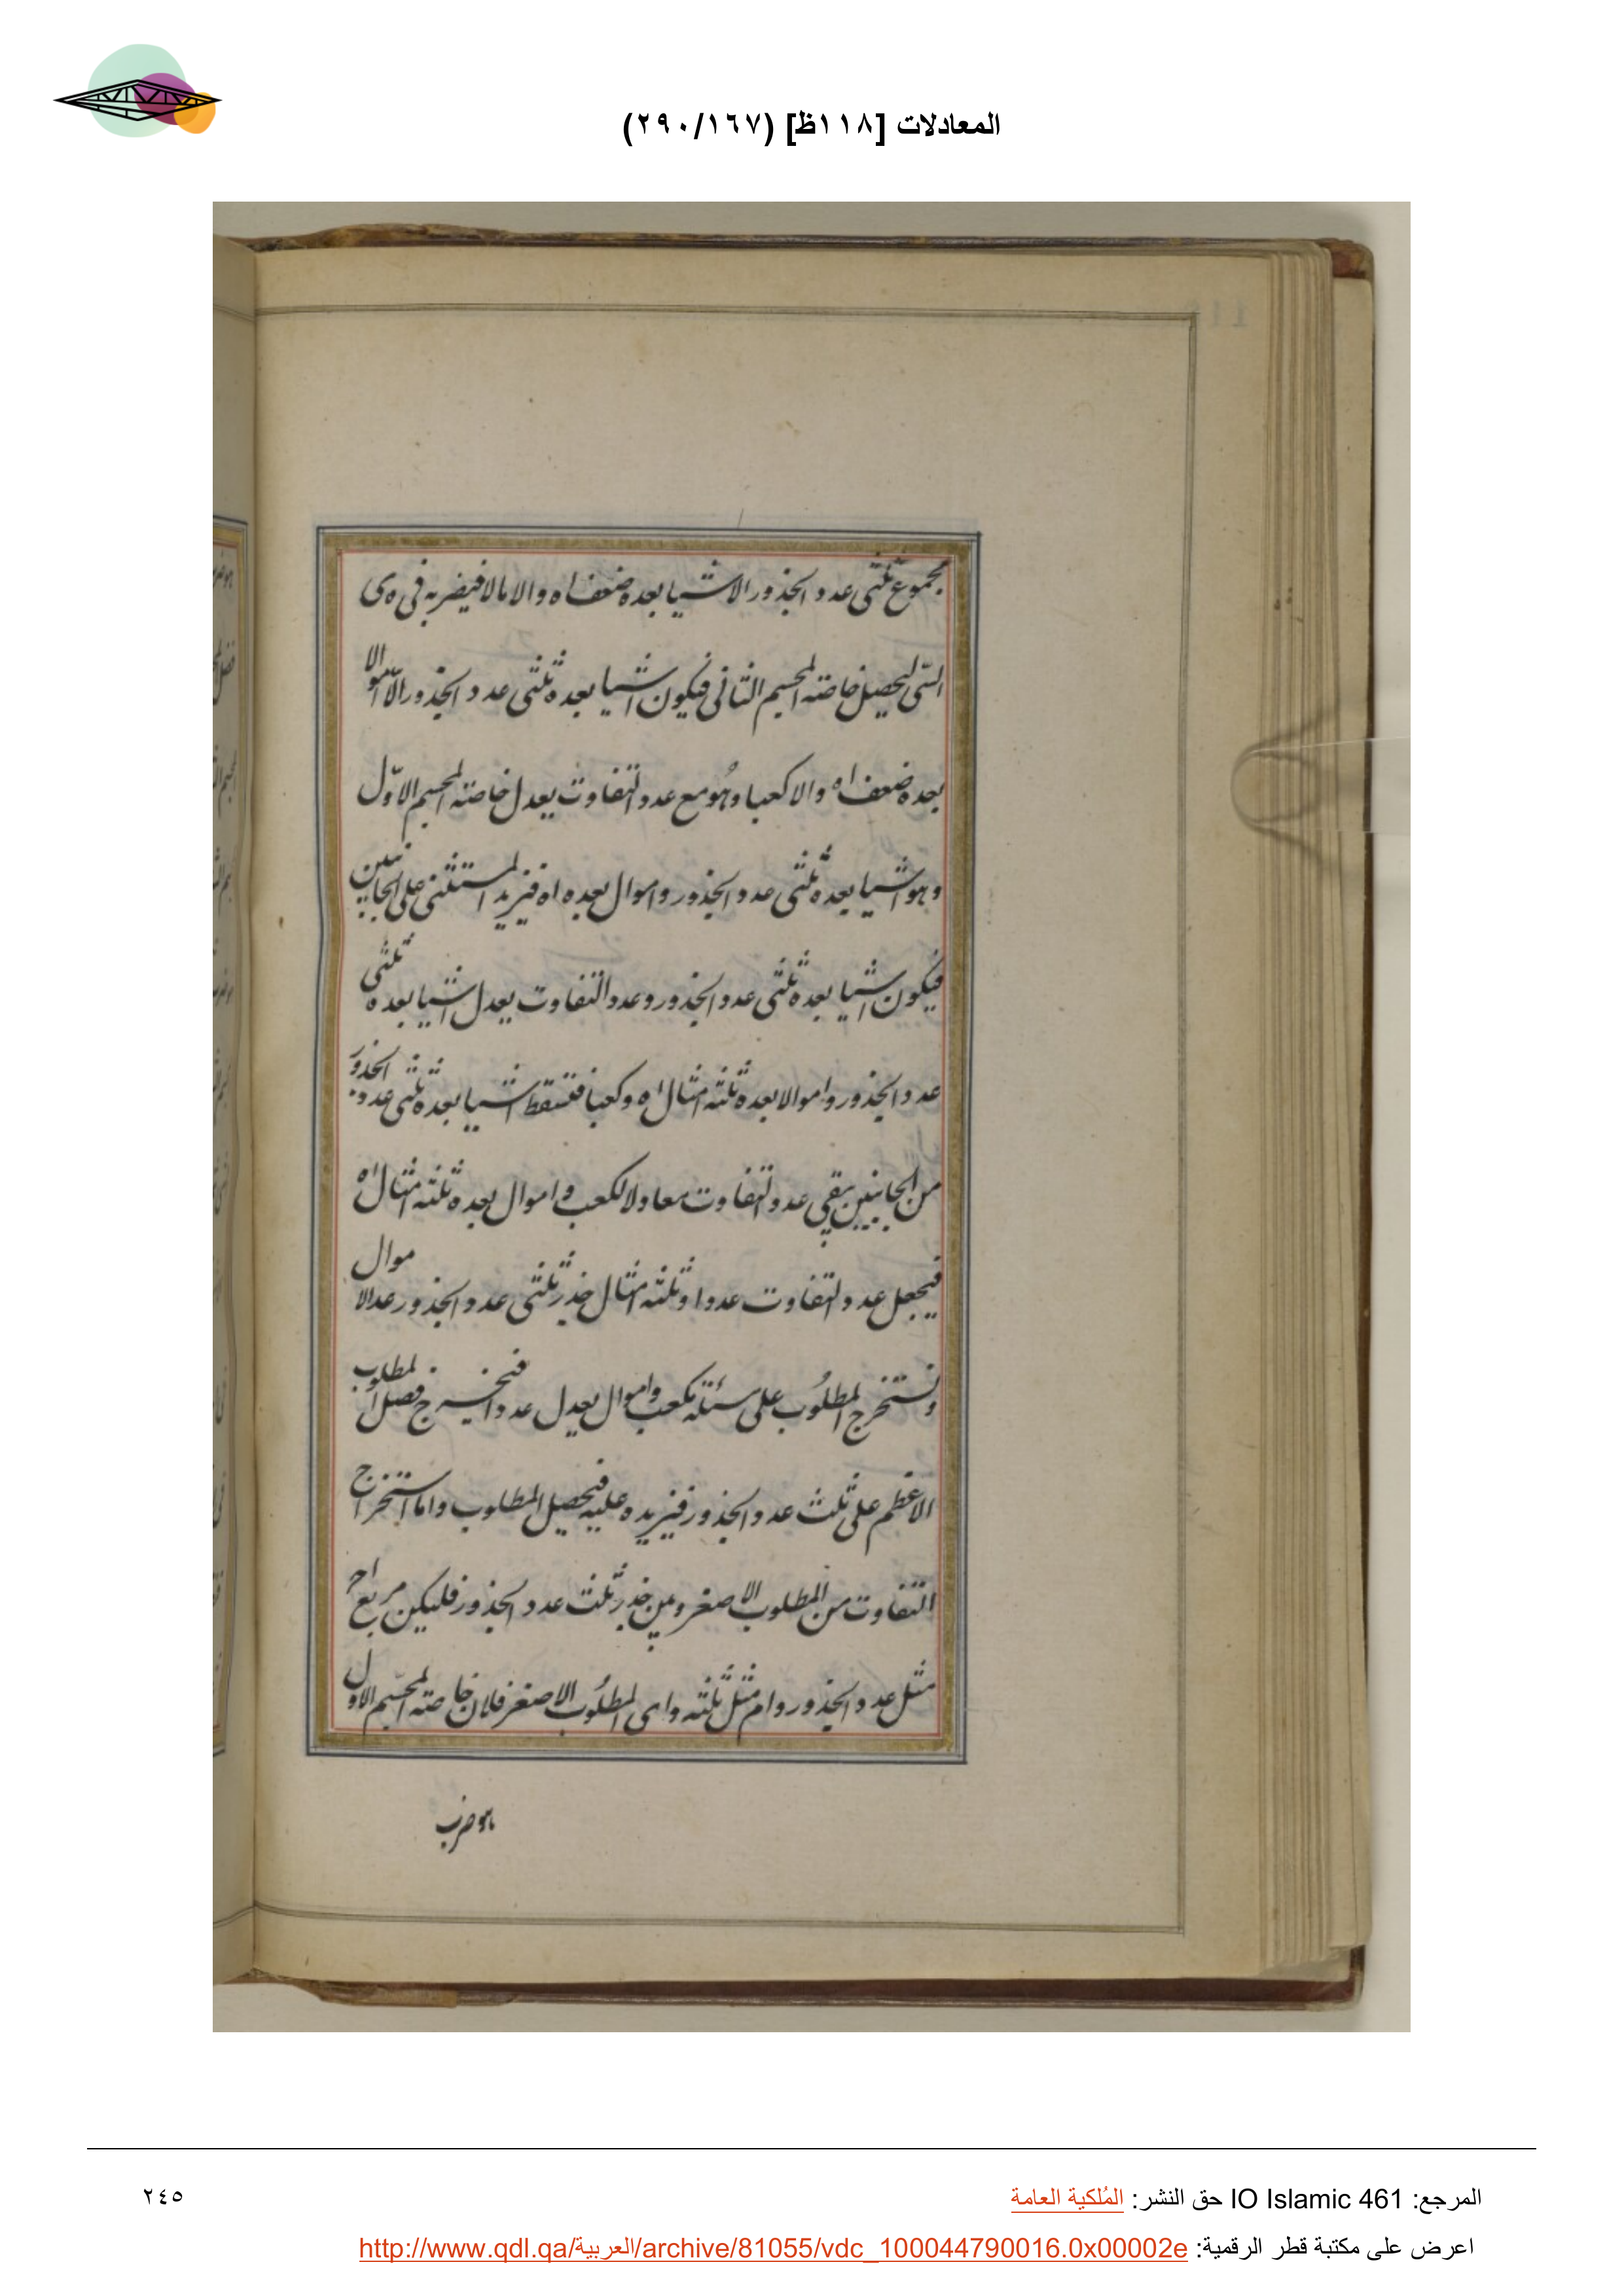 المعادلات [١١٨ظ] (٢٩٠/١٦٧)
مجموع ثلثى عدد الجذور الا شيا بعده ضعف اه والا مالا فيضربه فى ه ى
الشى ليحصل خاصته المجسم الثانى فيكون اشيا بعده ثلثى عدد الجذور الا اموالا
بعده ضعف اه والا كعبا وهُو مع عدد التفاوت يعدل خاصته المجسم الاوّل
وهو اشيا بعده ثلثى عدد الجذور واموال بعده اه فنزيد المستثنى على الجانبين
فيكون اشيا بعده ثلثى عدد الجذور وعدد التفاوت يعدل اشيا بعده ثلثى
عدد الجذور واموالا بعده ثلثه امثال اه وكعبا فتسقط اشيا بعده ثلثى عدد الجذور
من الجانبين يبقى عدد التفاوت معادلا لكعب واموال بعده ثلثه امثال اه
فيجعل عدد التفاوت عددا وثلثه امثال جذر ثلثى عدد الجذور عدد الاموال
ونستخرج المطلوُب على مسئلة كعب واموال يعدل عددا فيخرج فضل المطلوب
الاعظم على ثلث عدد الجذور فنزيده عليه فيحصل المطلوب واما استخراج
التفاوت من المطلوب الاصغر وبين جذر ثلث عدد الجذور فليكن مربع اح
مثل عدد الجذور وام مثل ثلثه واى المطلوُب الاصغر فلان خاصته المجسّم الاول
هو ضرب
المرجع: IO Islamic 461 حق النشر: المُلكية العامة
٢٤٥
اعرض على مكتبة قطر الرقمية: http://www.qdl.qa/العربية/archive/81055/vdc_100044790016.0x00002e